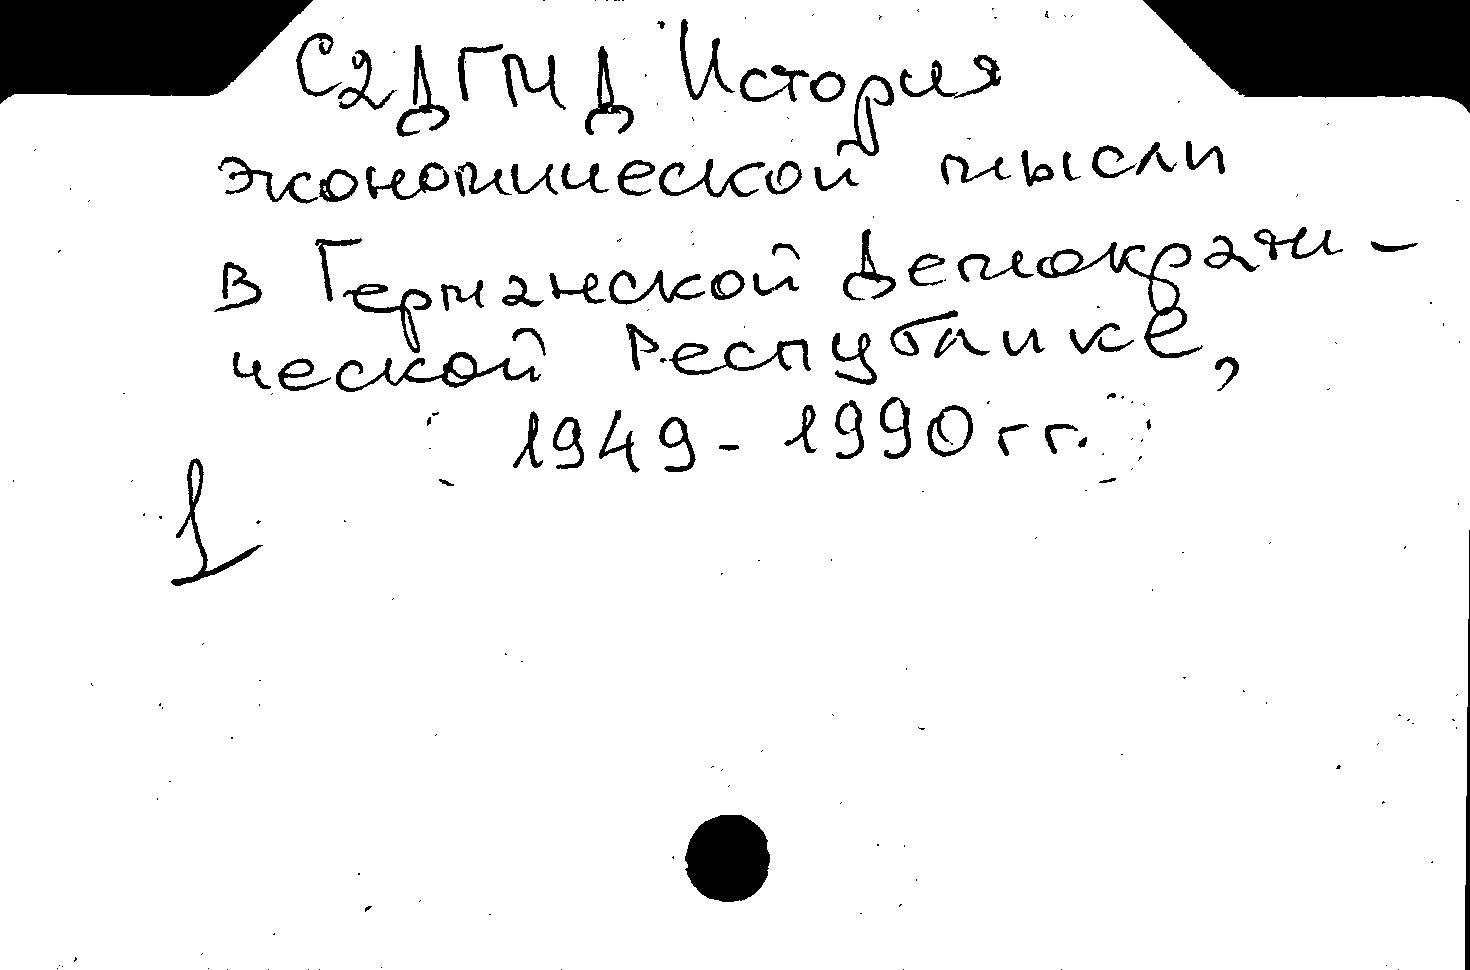 С2ДГМД История
экономической мысли
в Германской Демократи-
ческой Республике,
1949-1990 гг.
1